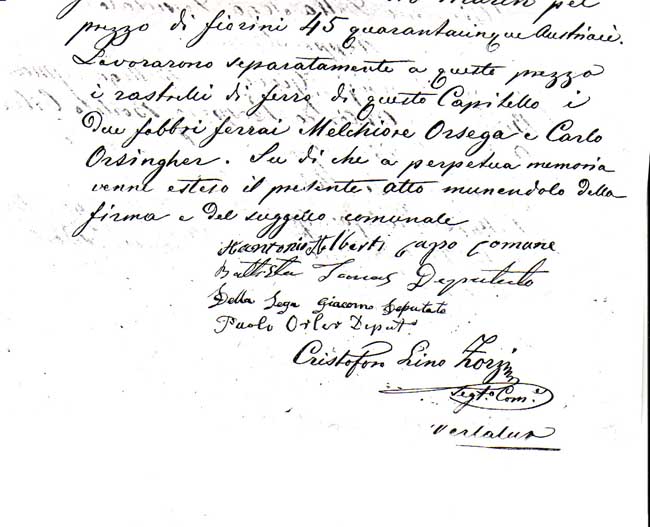 prezzo di fiorini 45 quarantacinque Austriaci.
Lavorarono separatamente a questo prezzo
i rastrelli di ferro di questo Capitello i
due fabbri ferrai Melchiore Orsega e Carlo
Orsingher. Su di che a perpetua memoria
venne esteso il presente atto munendolo della
firma e del suggello comunale
Antonio Alberti Capo Comune
Battista Tomas Deputato
Della Sega Giacomo Deputato
Paolo Orler Deput.o
Cristoforo Lino Zorzi
Segt.o Com.e